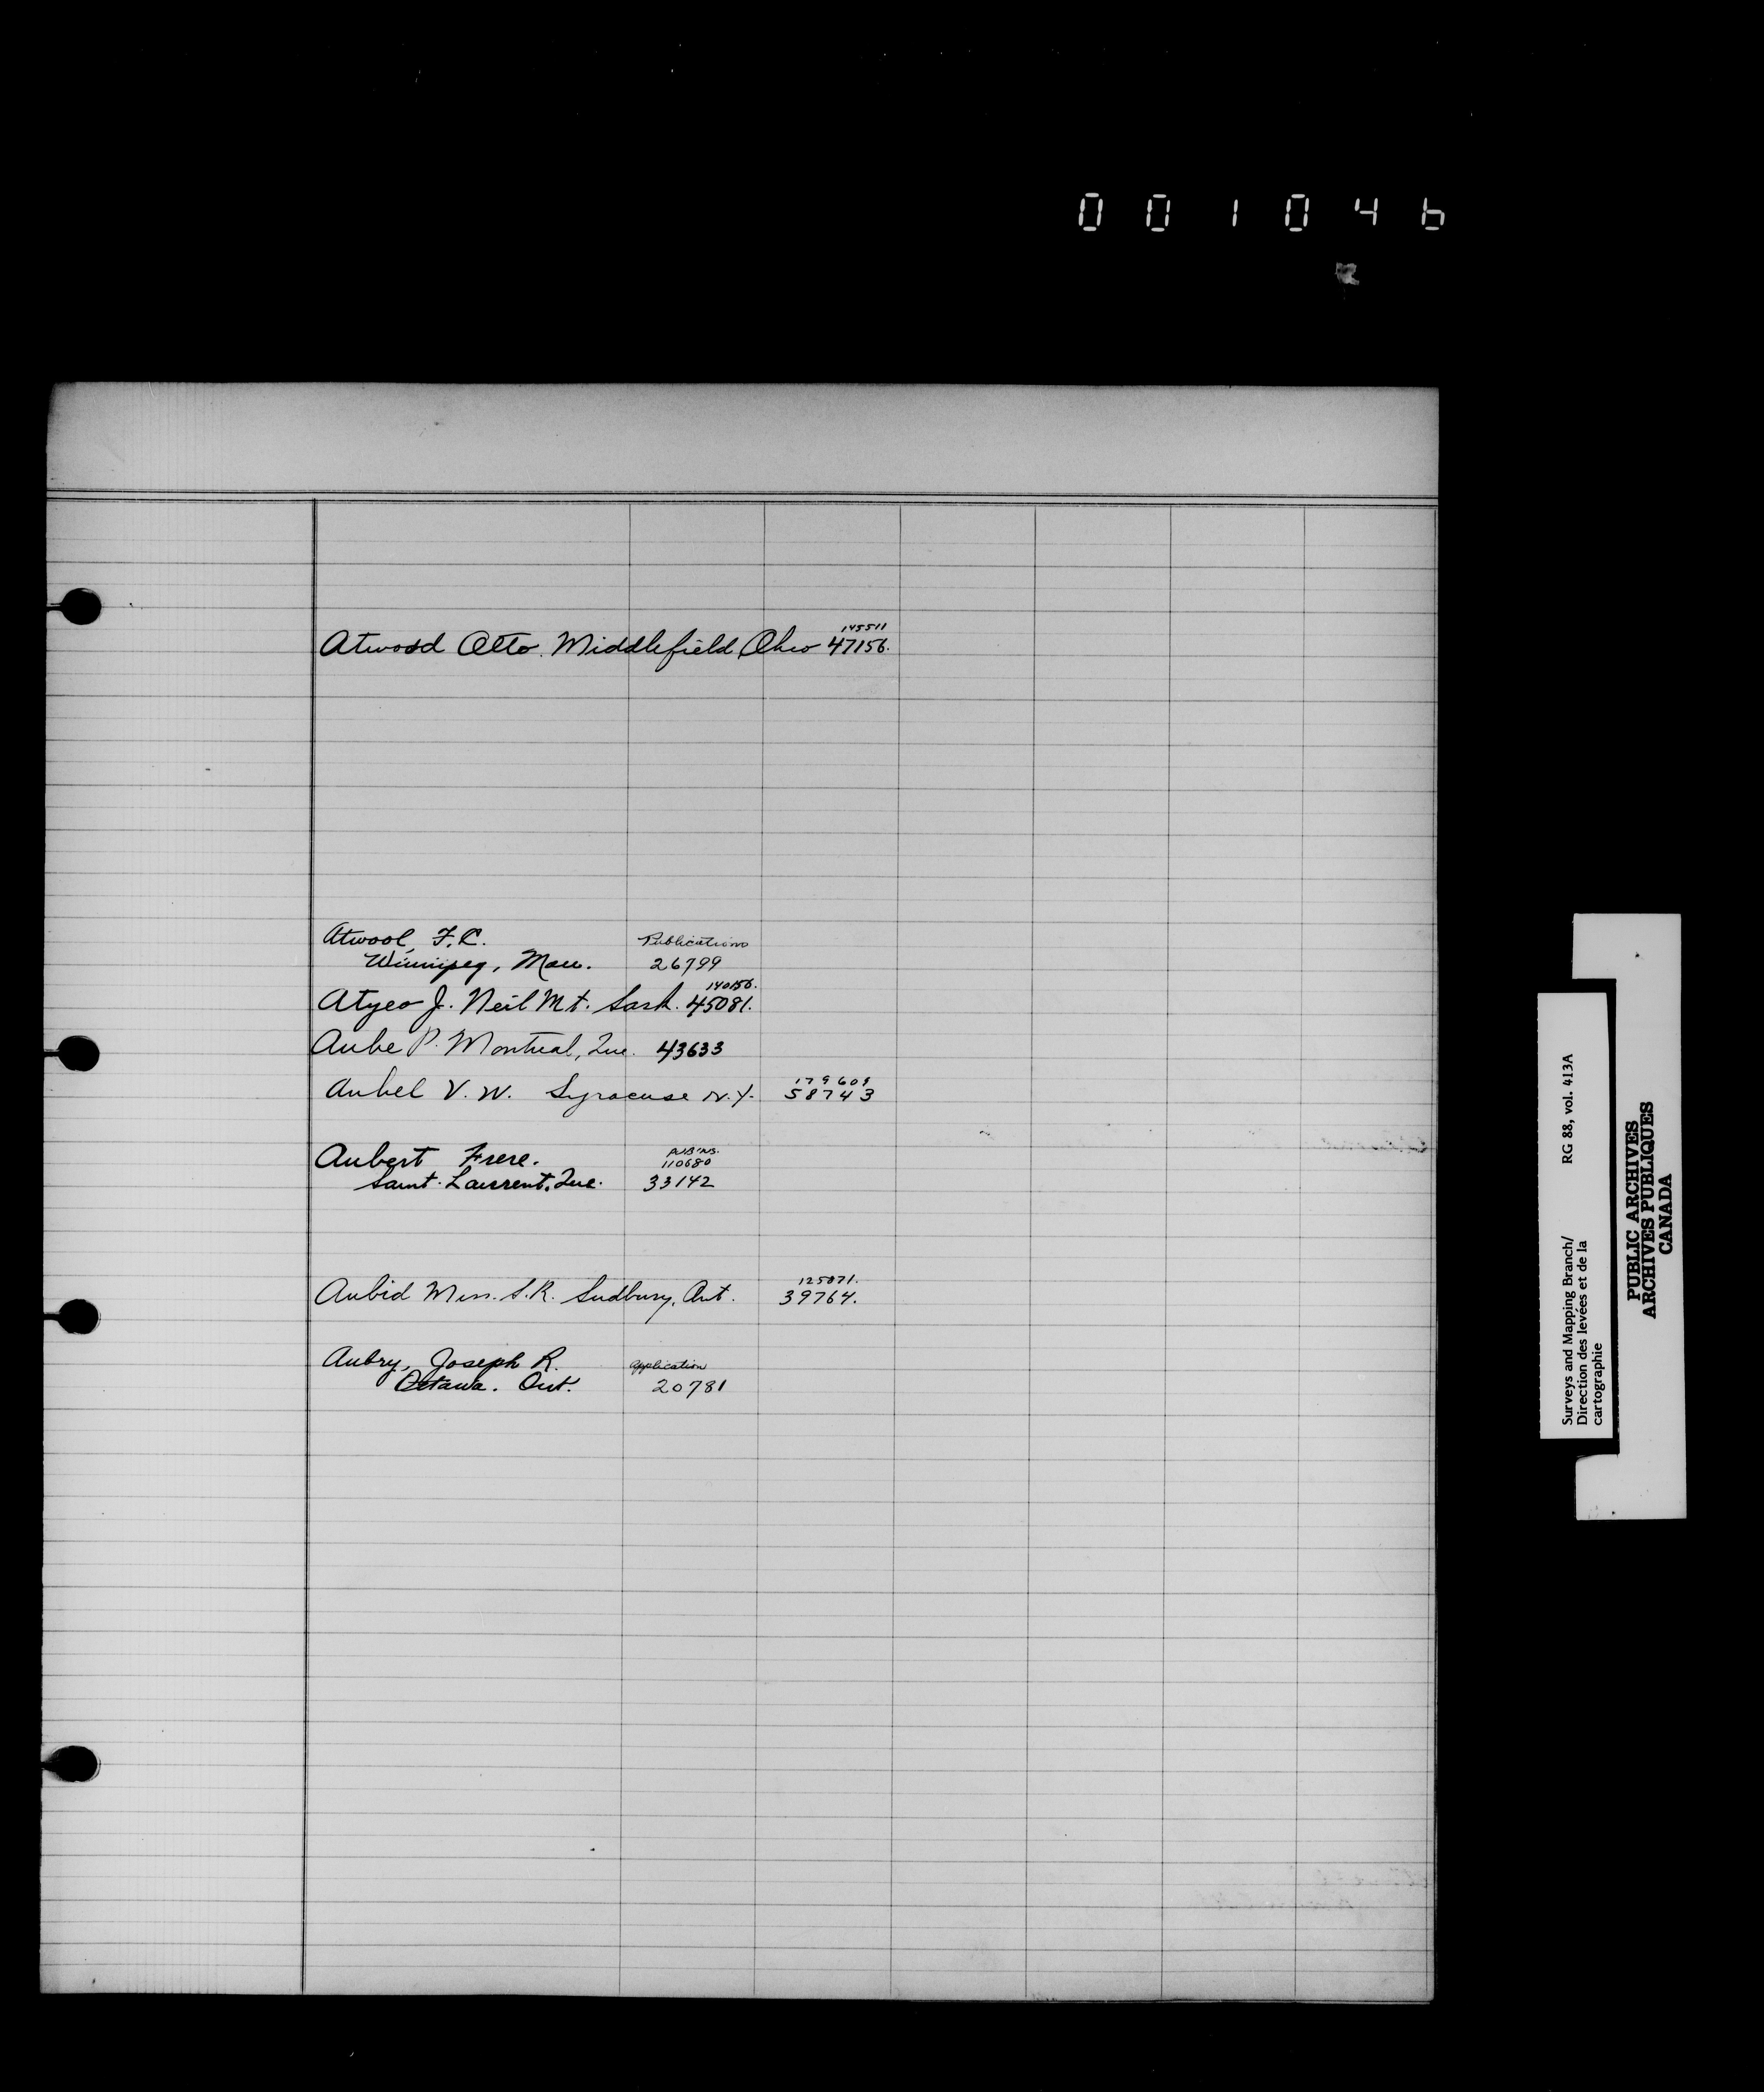 001046
145511
Atwood Otto. Middlefield, Ohio 47156.
Atwool, F.C. Publications
Winnipeg, Man. 26799
140156.
Atyeo J. Neil Mt. Sask. 45081.
Aube P. Montreal, Que. 43633
179609
Aubel V. W. Syracuse N.Y. 58743
PUB'NS.
Aubert Frere. 110680
Saint. Laurent. Que. 33142
125071.
Aubid Miss. S.R. Sudbury, Ont. 39764.
Aubry, Joseph R. Application
Ottawa. Ont. 20781
Surveys and Mapping Branch/ RG 88, vol. 413A
Direction des levées et de la
cartographie
PUBLIC ARCHIVES
ARCHIVES PUBLIQUES
CANADA